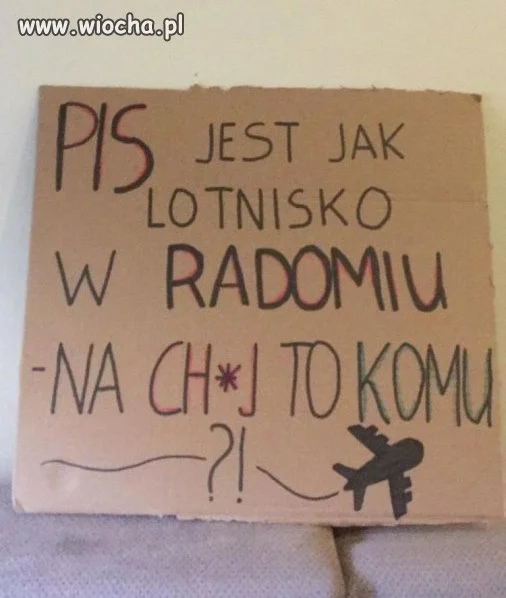 www.wiocha.pl
PIS JEST JAK
LOTNISKO
W RADOMIU
-NA CH*J TO KOMU
?!